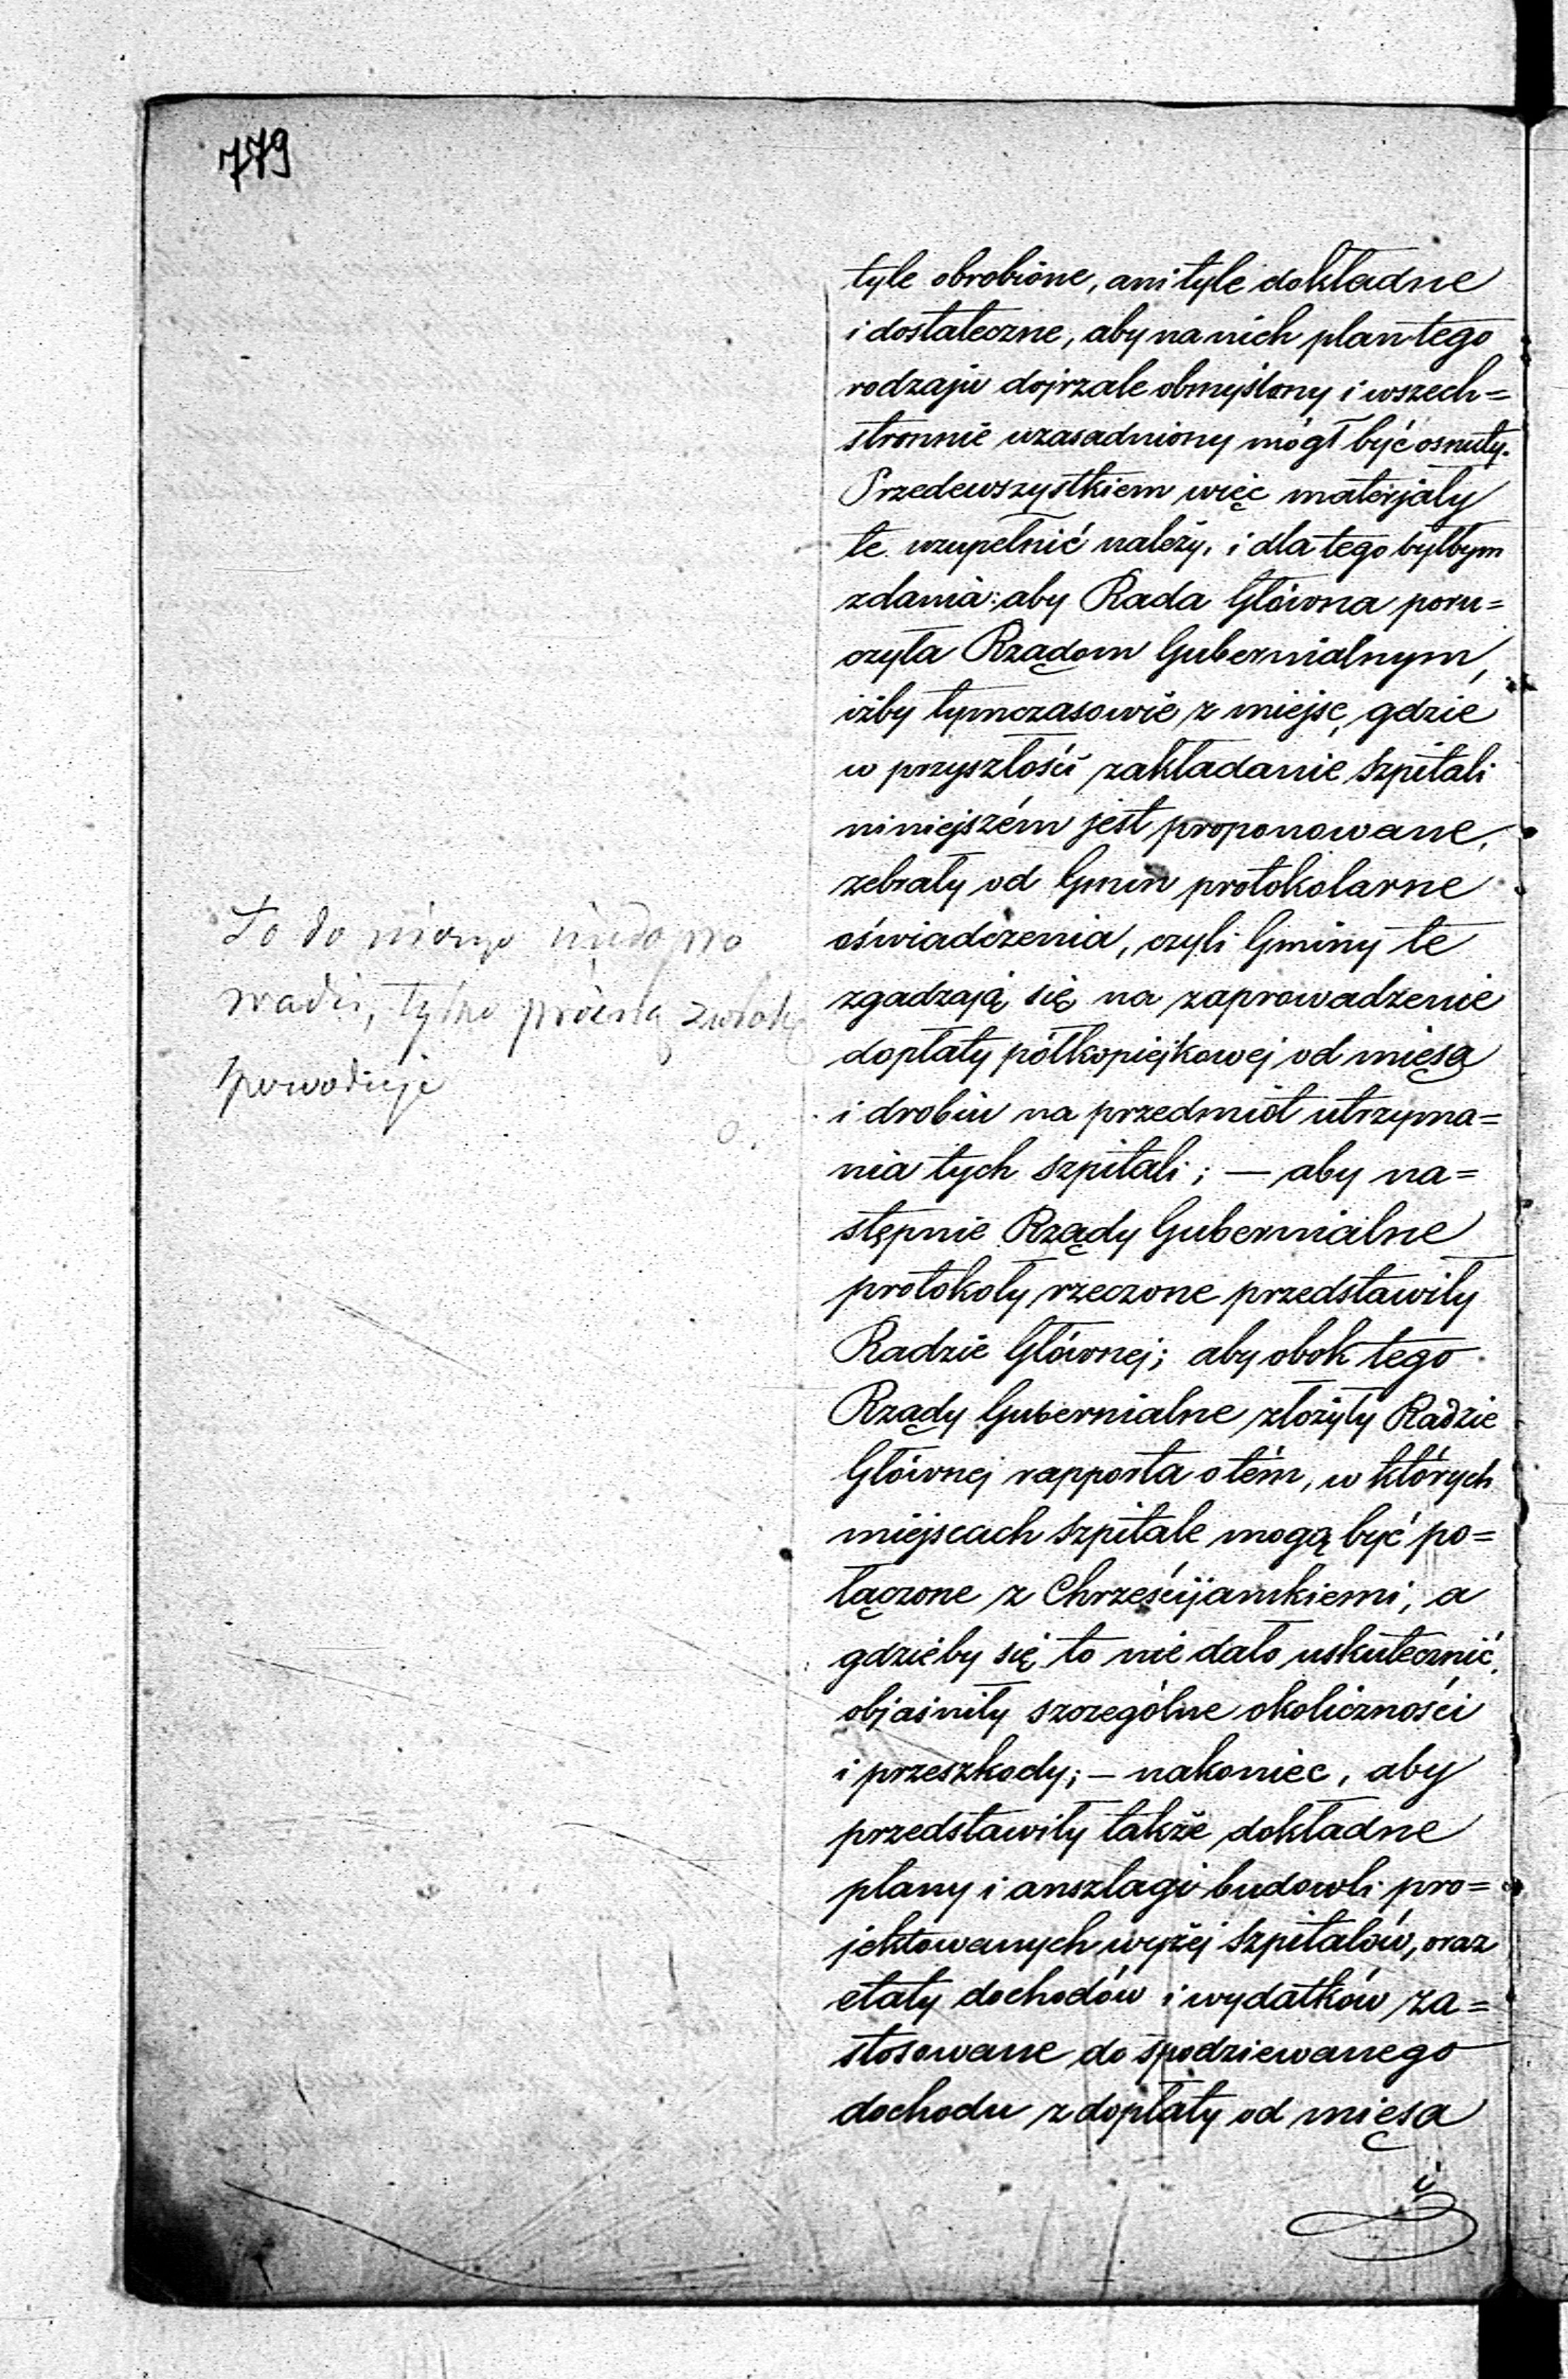 779
tyle obrobione, ani tyle dokładne
i dostateczne, aby na nich plan tego
rodzaju dojrzale obmyślony i wszech=
stronnie uzasadniony mógł być osnuty.
Przedewszystkiem więc materjały
te uzupełnić należy, i dla tego byłbym
zdania: aby Rada Główna poru=
czyła Rządom Gubernialnym,
iżby tymczasowie z miejsc, gdzie
w przyszłości zakładanie szpitali
niniejszém jest proponowane,
zebrały od Gmin protokolarne
oświadczenia, czyli Gminy te
zgadzają się na zaprowadzenie
dopłaty półkopiejkowej od mięsa
i drobiu na przedmiot utrzyma=
nia tych szpitali; — aby na=
stępnie Rządy Gubernialne
protokoły rzeczone przedstawiły
Radzie Głównej; aby obok tego
Rządy Gubernialne złożyły Radzie
Głównej rapporta o tém, w których
miejscach szpitale mogą być po=
łączone z Chrześcijańskiemi, a
gdzieby się to nie dało uskutecznić,
objaśniły szczególne okoliczności
i przeszkody; — nakoniec, aby
przedstawiły także dokładne
plany i anszlagi budowli pro=
jektowanych wyżej szpitalów, oraz
etaty dochodów i wydatków za=
stosowane do spodziewanego
dochodu z dopłaty od mięsa
i
To do niczego niedopro
wadzi, tylko próżną zwłokę
spowoduje